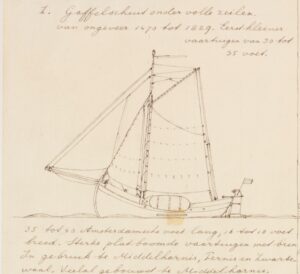 1. Gaffelschuit onder volle zeilen.
van ongeveer 1670 tot 1829. Eerst kleiner
vaartuigen van 30 tot
35 voet.
35 tot 40 Amsterdamsche voet lang, 16 tot 18 voet
breed. Sterke plat boomde vaartuigen met
In gebruik te Middelharnis, Pernis en Zwarte
waal. Veelal gebouwd te Middelharnis.